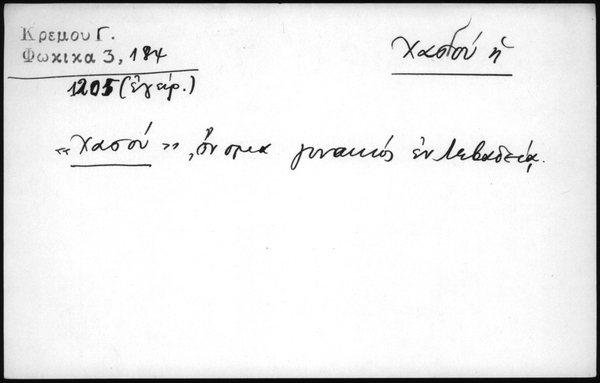 Κρεμου Γ.
Φωκικα 3, 184
Χασού ἡ
1205 (ἐγείρ.)
«Χασού», ὄνομα γυναικός ἐν Λεβαδείᾳ.